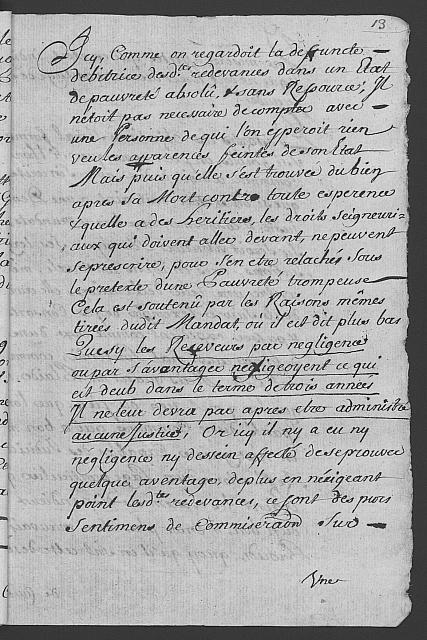 13
Icy, Comme on regardoit la deffuncte
debitrice desd.tes redevances dans un Etat
de pauvreté absolû, & sans Ressource; Il
n'etoit pas necessaire de compter avec
une Personne de qui l'on esperoit rien
veu les apparences feintes de son Etat
Mais puis qu'elle s'est trouvée du bien
apres sa Mort contre toute esperence
& quelle a des heritiers, les droits Seigneuri-
aux qui doivent aller devant, ne peuvent
se prescrire, pour s'en etre relachés sous
le pretexte d'une Pauvreté trompeuse
Cela est soutenû par les Raisons mêmes
tirées dudit Mandat, où il est dit plus bas
Que sy les Receveurs par negligence
ou par s'avantager negligeoyent ce qui
est deub dans le terme de trois années
Il ne leur devra par apres etre administré
aucune Justice, Or icy il n'y a eu ny
negligence ny dessein affecté de se prouver
quelque aventage, de plus en n'éxigeant
point lesd.tes redevances, ce sont des purs
sentimens de Commiseraõn sur
Une